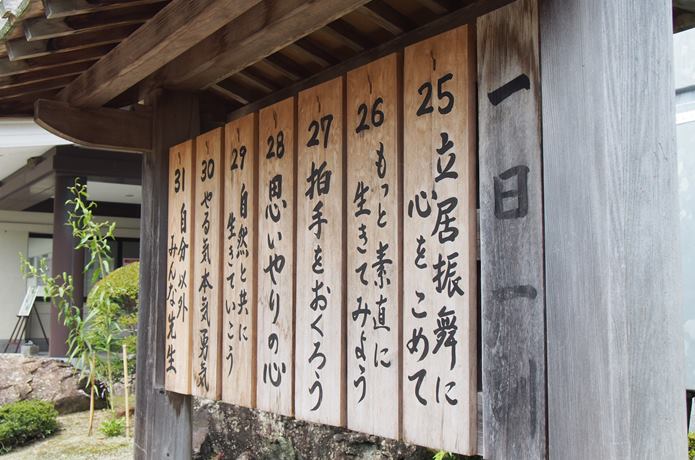 一日一
25 立居振舞に
心をこめて
26 もっと素直に
生きてみよう
27 拍手をおくろう
28 思いやりの心
29 自然と共に
生きていこう
30 やる気本気勇気
31 自分以外
みんな先生